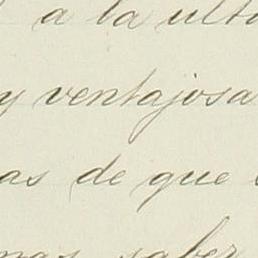 a a la ulti
y ventajosa
as de que s
mas saber